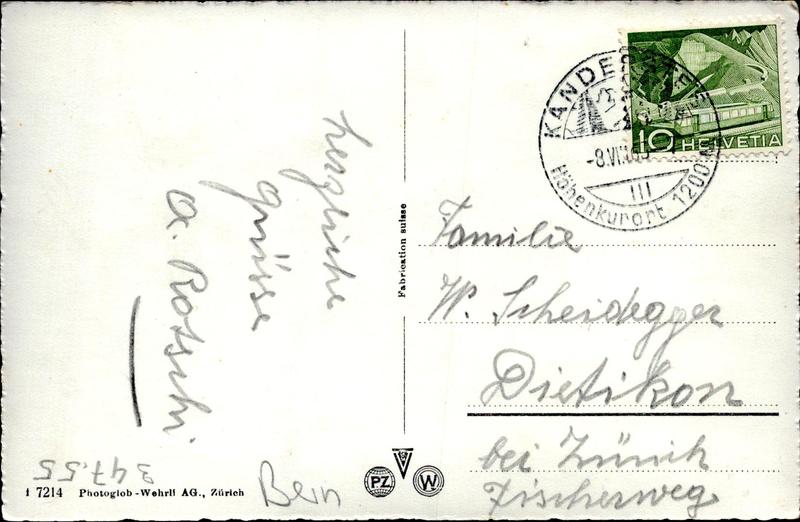 herzliche
grüsse
a. Rotschi
KANDERSTEG
-8.VI
III
Höhenkurort 1200 M
10 HELVETIA
Familie
W. Scheidegger
Dietikon
bei Zürich
Fischerweg
Fabrication suisse
347.55
1 7214 Photoglob-Wehrli AG., Zürich
Bern
PZ
W